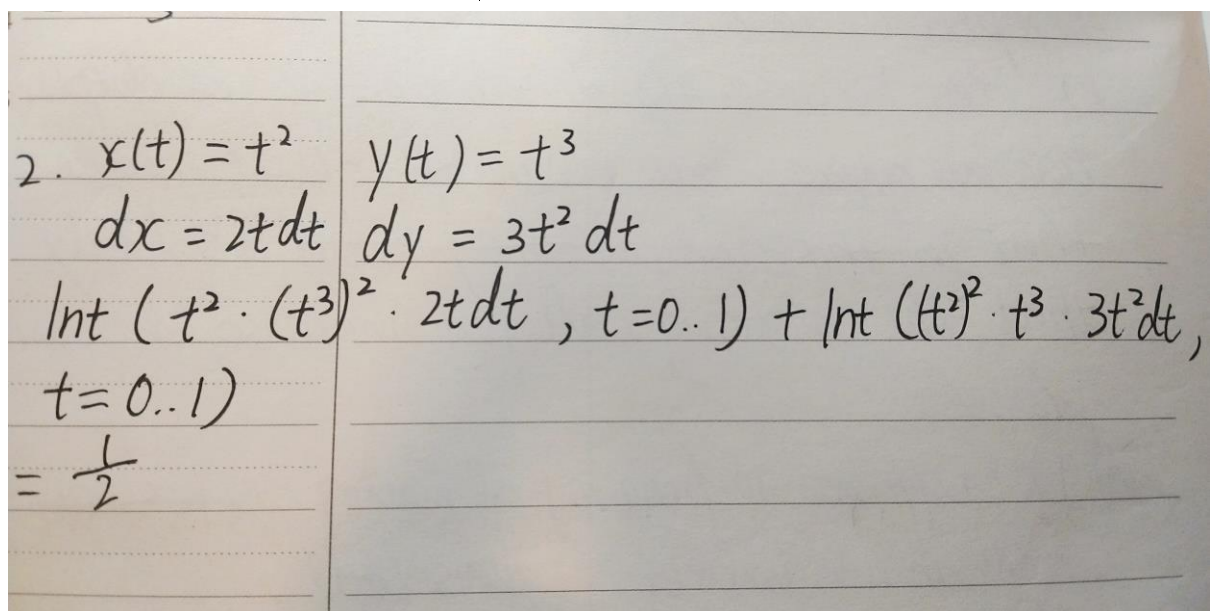 2. x(t) = t² y(t) = t³
dx = 2tdt dy = 3t² dt
Int ( t² · (t³)² · 2tdt , t=0..1) + Int ((t²)² · t³ · 3t²dt,
t=0..1)
= 1/2